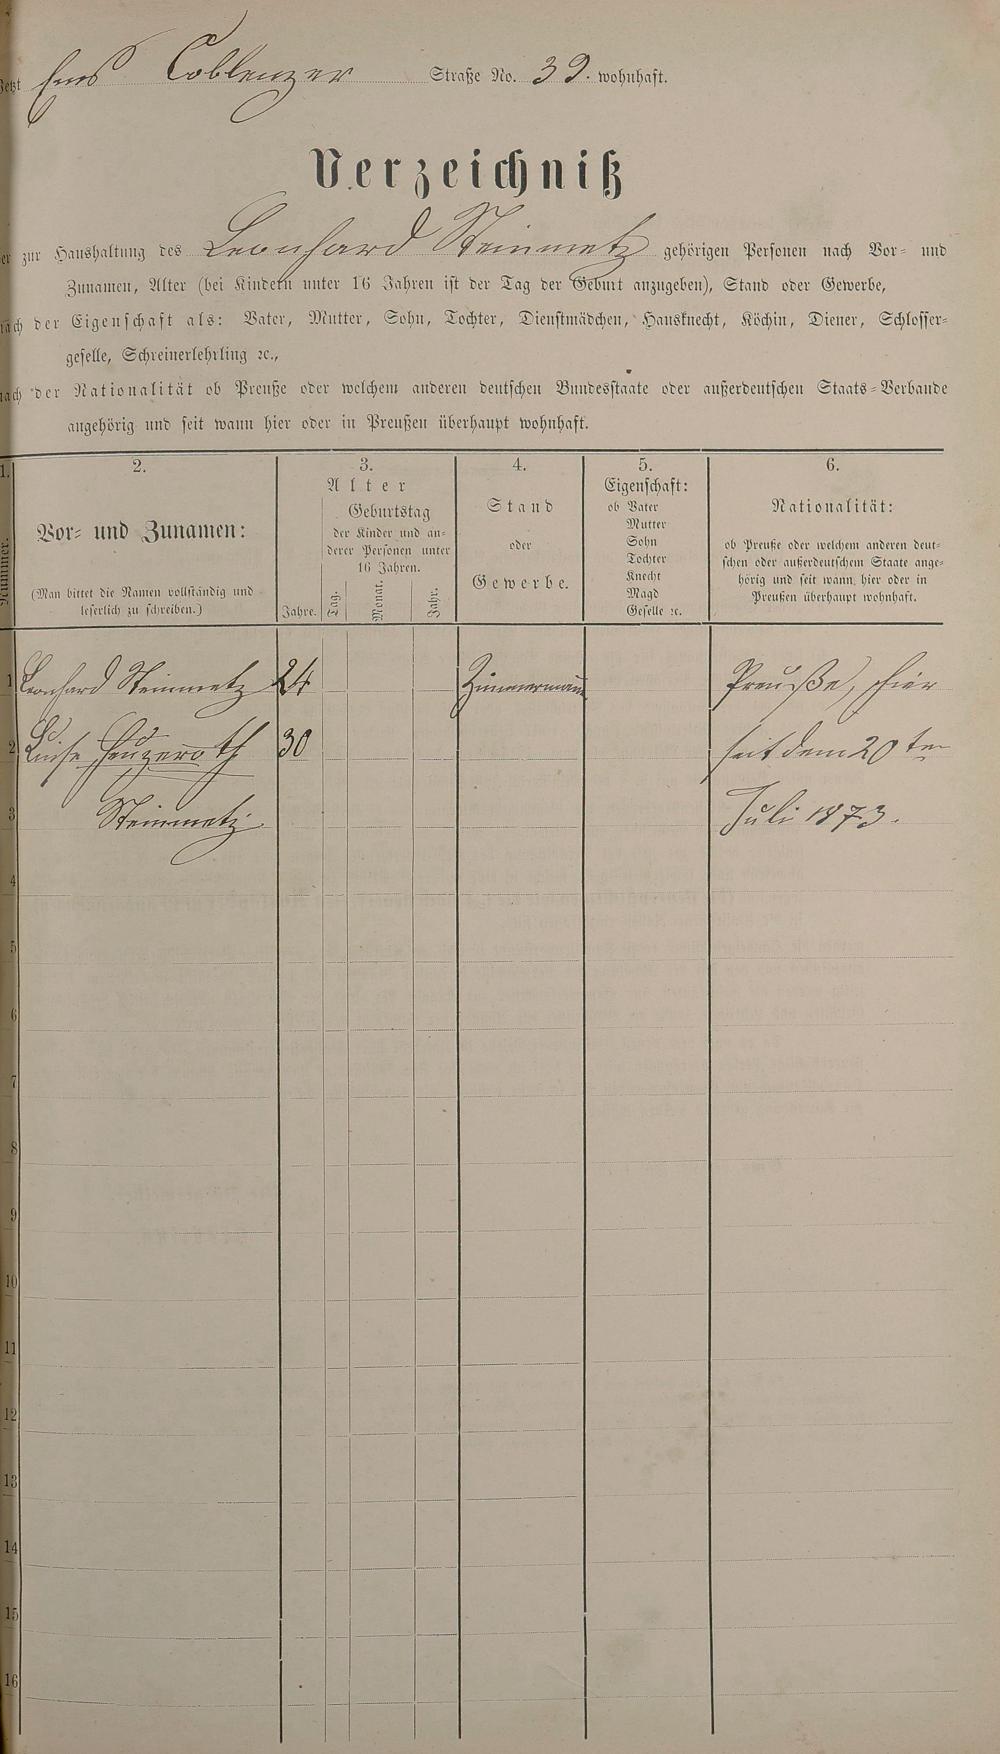 Jetzt Ems Coblenzer Straße No. 39. wohnhaft.
Verzeichniß
zur Haushaltung des Leonhard Steinmetz gehörigen Personen nach Vor- und
Zunamen, Alter (bei Kindern unter 16 Jahren ist der Tag der Geburt anzugeben), Stand oder Gewerbe,
nach der Eigenschaft als: Vater, Mutter, Sohn, Tochter, Dienstmädchen, Hausknecht, Köchin, Diener, Schlosser-
geselle, Schreinerlehrling ꝛc.,
nach der Nationalität ob Preuße oder welchem anderen deutschen Bundesstaate oder außerdeutschen Staats-Verbande
angehörig und seit wann hier oder in Preußen überhaupt wohnhaft.
1.
Nummer.
2.
Vor- und Zunamen:
(Man bittet die Namen vollständig und
leserlich zu schreiben.)
3.
Alter
Jahre.
Geburtstag
der Kinder und an-
derer Personen unter
16 Jahren.
Tag.
Monat.
Jahr.
4.
Stand
oder
Gewerbe.
5.
Eigenschaft:
ob Vater
Mutter
Sohn
Tochter
Knecht
Magd
Geselle ꝛc.
6.
Nationalität:
ob Preuße oder welchem anderen deut-
schen oder außerdeutschem Staate ange-
hörig und seit wann hier oder in
Preußen überhaupt wohnhaft.
1 Leonhard Steinmetz 24 Zimmermann Preuße, hier
2 Luise Heuzeroth 30 seit dem 20ten
3 Steinmetz. Juli 1873.
4
5
6
7
8
9
10
11
12
13
14
15
16